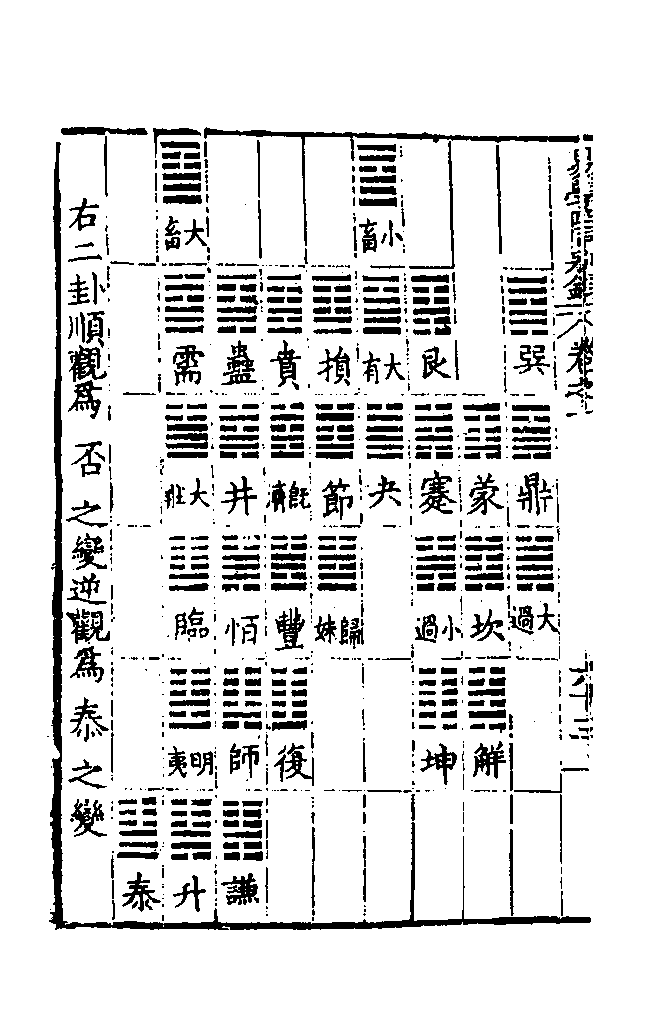 卷之
巽
鼎
大過
蒙
坎
解
艮
蹇
小過
坤
小畜
大有
夬
損
節
歸妹
賁
既濟
豐
復
蠱
井
恒
師
謙
大畜
需
大壯
臨
明夷
升
泰
右二卦順觀爲否之變逆觀爲泰之變